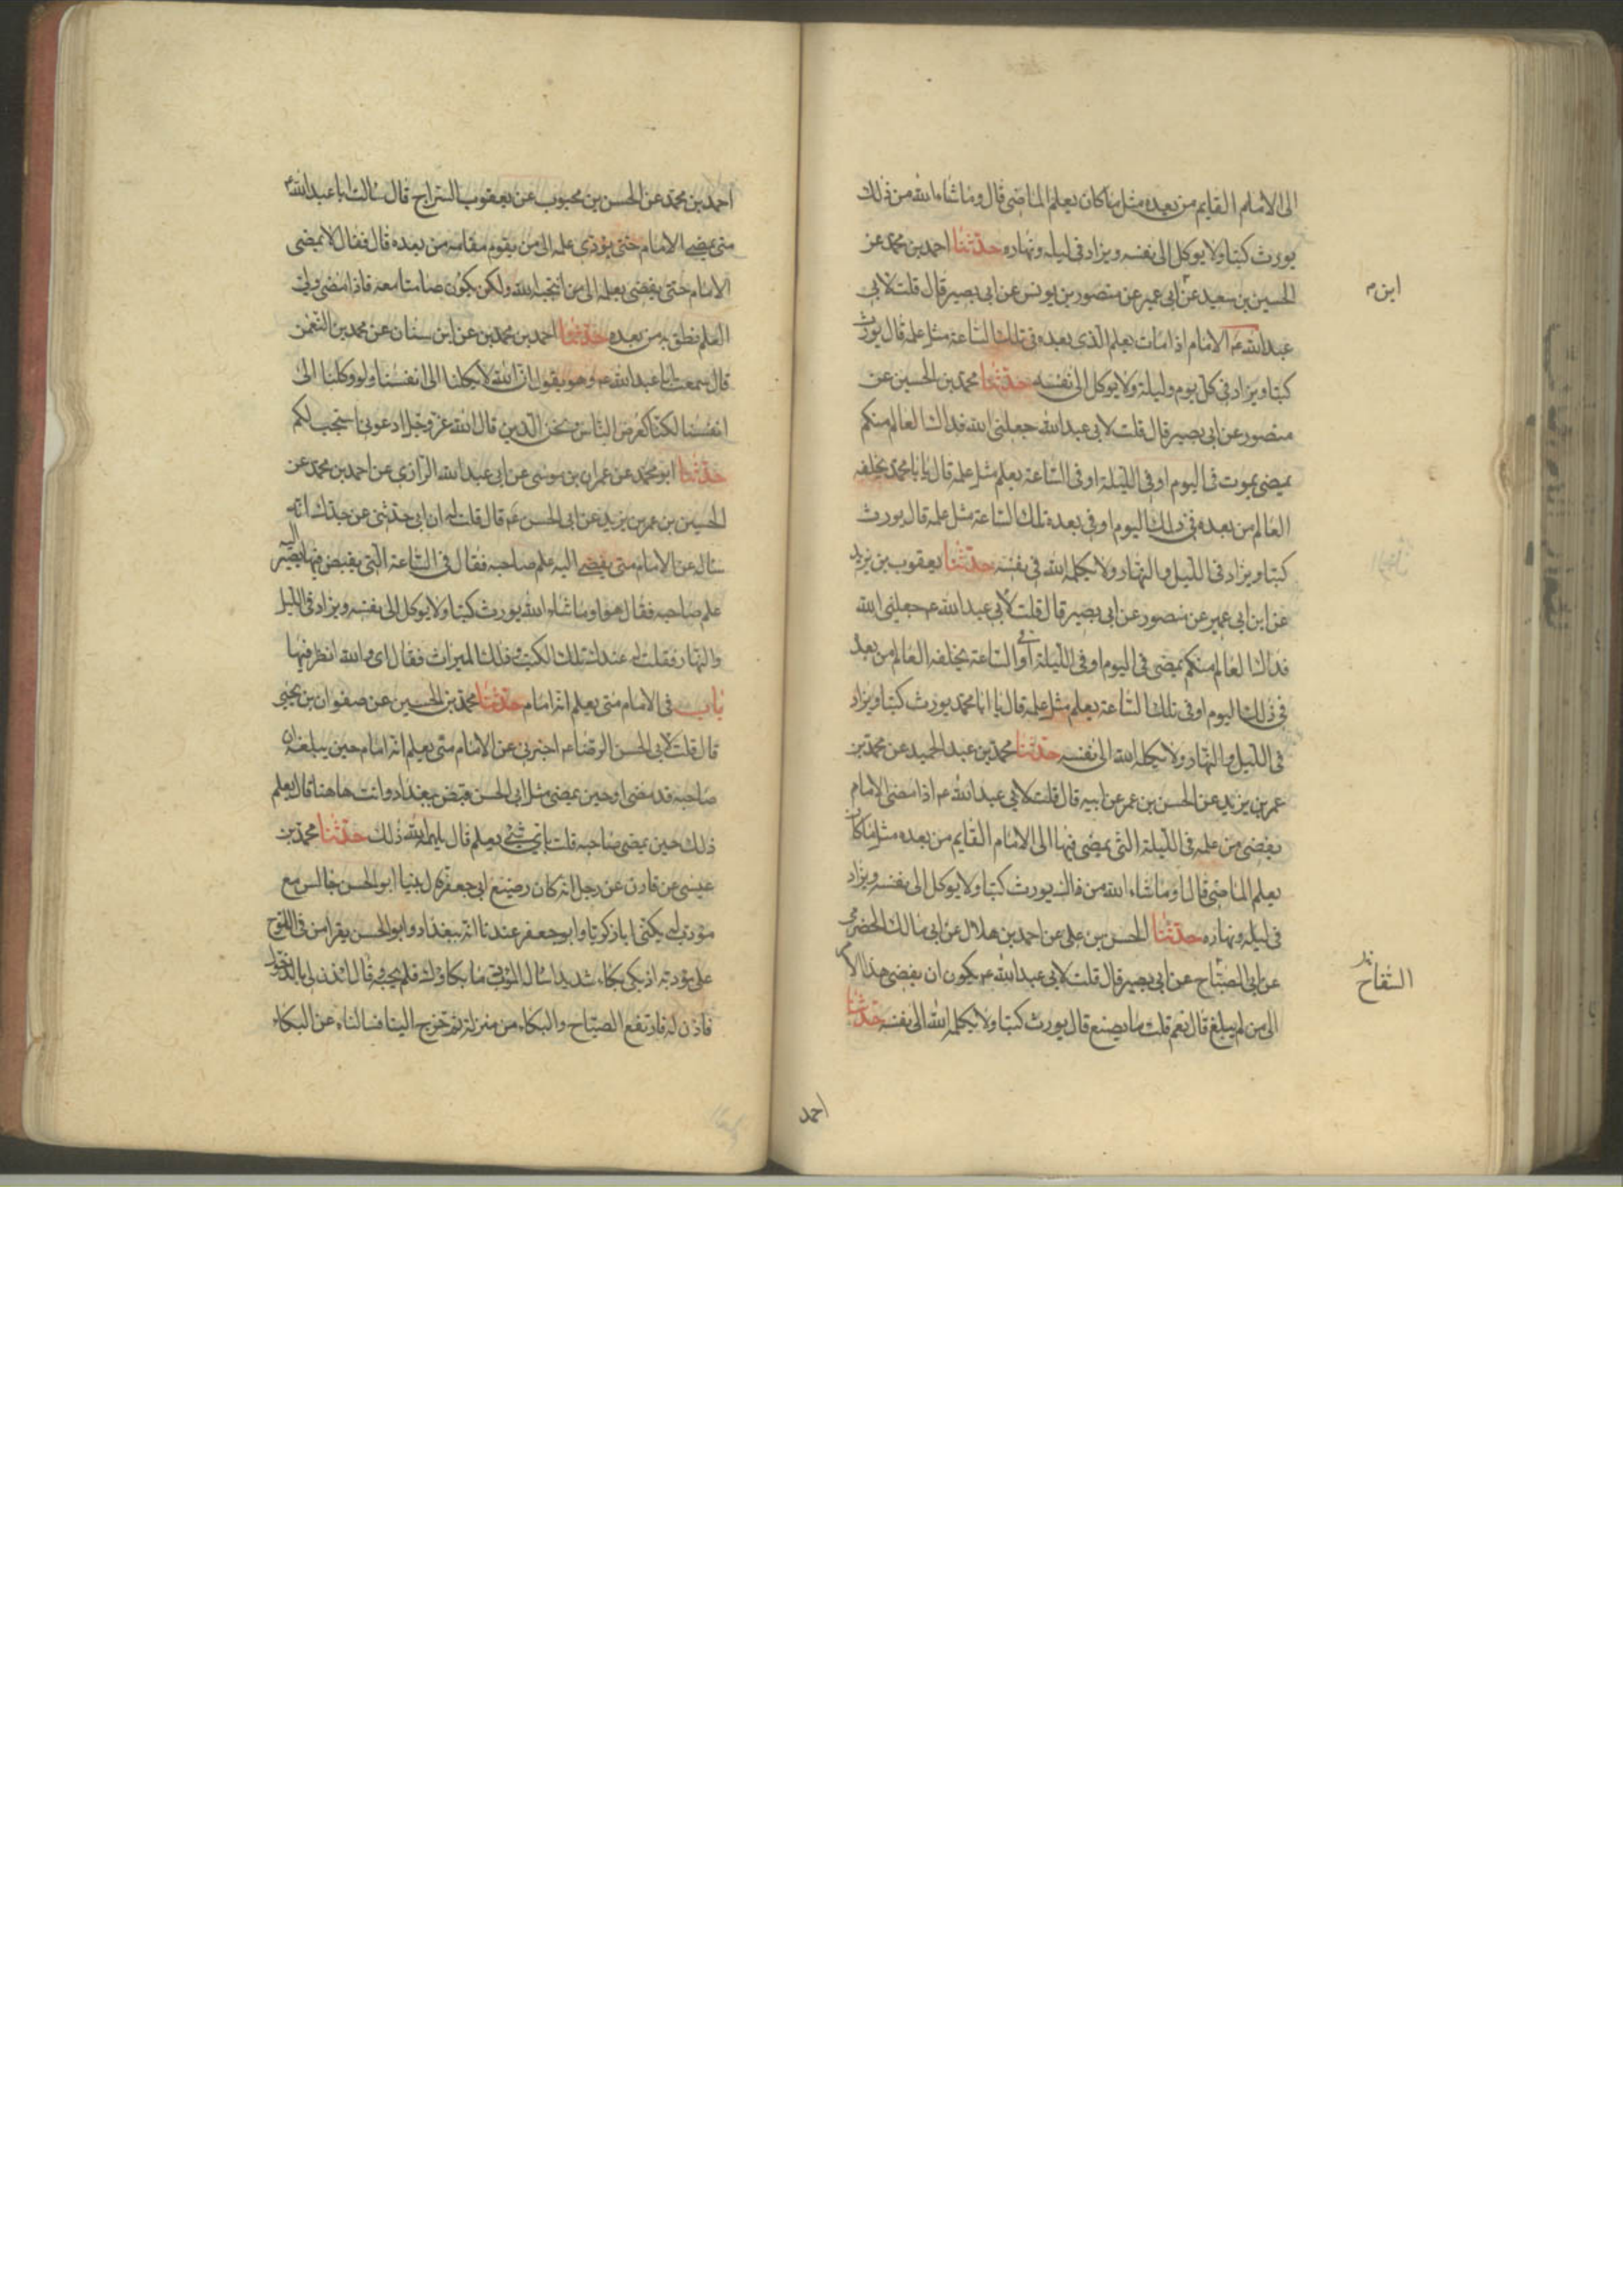 الى الامام القايم من بعده مثل ما كان يعلم الماضى قال وما شاء الله من ذلك
يورث كتبا ولا يوكل الى نفسه ويزاد فى ليله ونهاره حدثنا احمد بن محمد عن
الحسين بن سعيد عن ابى عمير عن منصور بن يونس عن ابى بصير قال قلت لابى
ابن م
عبد الله عم الامام اذا مات يعلم الذى بعده فى تلك الساعة مثل علمه قال يورث
كتبا ويزاد فى كل يوم وليلة ولا يوكل الى نفسه حدثنا محمد بن الحسين عن
منصور عن ابى بصير قال قلت لابى عبد الله جعلنى الله فداك العالم منكم
يمضى يموت فى اليوم او فى الليلة او فى الساعة يعلم مثل علمه قال يا ابا محمد يخلفه
العالم من بعده فى ذلك اليوم او فى بعده تلك الساعة مثل علمه قال يورث
كتبا ويزاد فى الليل والنهار ولا يكله الله فى نفسه حدثنا يعقوب بن يزيد
عن ابن ابى عمير عن منصور عن ابى بصير قال قلت لابى عبد الله عم جعلنى الله
فداك العالم منكم يمضى فى اليوم او فى الليلة او فى الساعة يخلفه العالم من بعده
فى ذلك اليوم او فى تلك الساعة يعلم مثل علمه قال يا ابا محمد يورث كتبا ويزاد
فى الليل والنهار ولا يكله الله الى نفسه حدثنا محمد بن عبد الحميد عن محمد بن
عمر بن يزيد عن الحسن بن عمر عن ابيه قال قلت لابى عبد الله عم اذا مضى الامام
يفضى من علمه فى الليلة التى يمضى فيها الى الامام القايم من بعده مثل ما كان
يعلم الماضى قال او ما شاء الله من ذلك يورث كتبا ولا يوكل الى نفسه ويزاد
فى ليله ونهاره حدثنا الحسن بن على عن احمد بن هلال عن ابى مالك الحضرمى
عن ابى الصباح عن ابى بصير قال قلت لابى عبد الله عم يكون ان يفضى هذا الامر
الى من لم يبلغ قال نعم قلت ما يصنع قال يورث كتبا ولا يكله الله الى نفسه حدثنا
احمد
احمد بن محمد عن الحسن بن محبوب عن يعقوب السراج قال سالت ابا عبد الله م
متى يمضى الامام حتى يودى علمه الى من يقوم مقامه من بعده قال فقال لا يمضى
الامام حتى يفضى بعلمه الى من انتجبه الله ولكن يكون صامتا معه فاذا مضى ولى
العلم نطق به من بعده حدثنا احمد بن محمد بن عن ابن سنان عن محمد بن النعمن
قال سمعت ابا عبد الله عم وهو يقول ان الله لا يكلنا الى انفسنا ولو وكلنا الى
انفسنا لكنا كعرض الناس ونحن الذين قال الله عز وجل ادعونى استجب لكم
حدثنا ابو محمد عن عمران بن موسى عن ابى عبد الله الرازى عن احمد بن محمد عن
الحسين بن عمر بن يزيد عن ابى الحسن عم قال قلت له ان ابى حدثنى عن جدك انه
ساله عن الامام متى يفضى اليه علم صاحبه فقال فى الساعة التى يقبض فيها يصير اليه
علم صاحبه فقال هو او ما شاء الله يورث كتبا ولا يوكل الى نفسه ويزاد فى الليل
والنهار فقلت له عندك تلك الكتب وذلك الميراث فقال اى والله انظر فيها
باب فى الامام متى يعلم انه امام حدثنا محمد بن الحسين عن صفوان بن يحيى
قال قلت لابى الحسن الرضا عم اخبرنى عن الامام متى يعلم انه امام حين يبلغه ان
صاحبه قد مضى او حين يمضى مثل ابى الحسن قبض ببغداد وانت هاهنا قال يعلم
ذلك حين يمضى صاحبه قلت باى شئ يعلم قال يلهمه الله ذلك حدثنا محمد بن
عيسى عن قارن عن رجل انه كان رضيع ابى جعفر قال بينا ابو الحسن جالس مع
مودب له يكنى ابا زكريا وابو جعفر عندنا انه ببغداد وابو الحسن يقرا من فى اللوح
على مودبه اذ بكى بكاء شديدا سال المودب ما بكاوك فلم يجبه وقال ائذن لى بالدخول
فاذن له فارتفع الصياح والبكاء من منزله ثم خرج الينا فسالناه عن البكاء